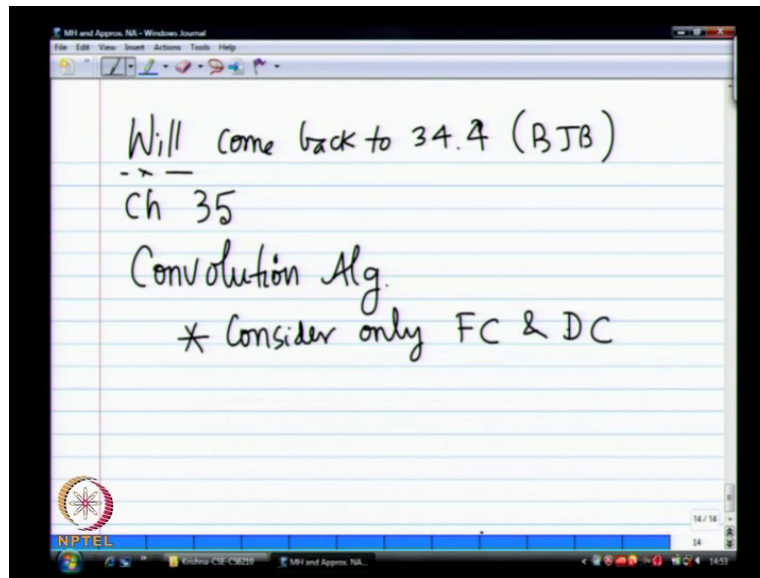 MH and Approx. NA - Windows Journal
File Edit View Insert Actions Tools Help
Will come back to 34.4 (BJB)
Ch 35
Convolution Alg.
* Consider only FC & DC
14 / 14
14
NPTEL
Krishna-CSE-CS6210 MH and Approx. NA... 14:53